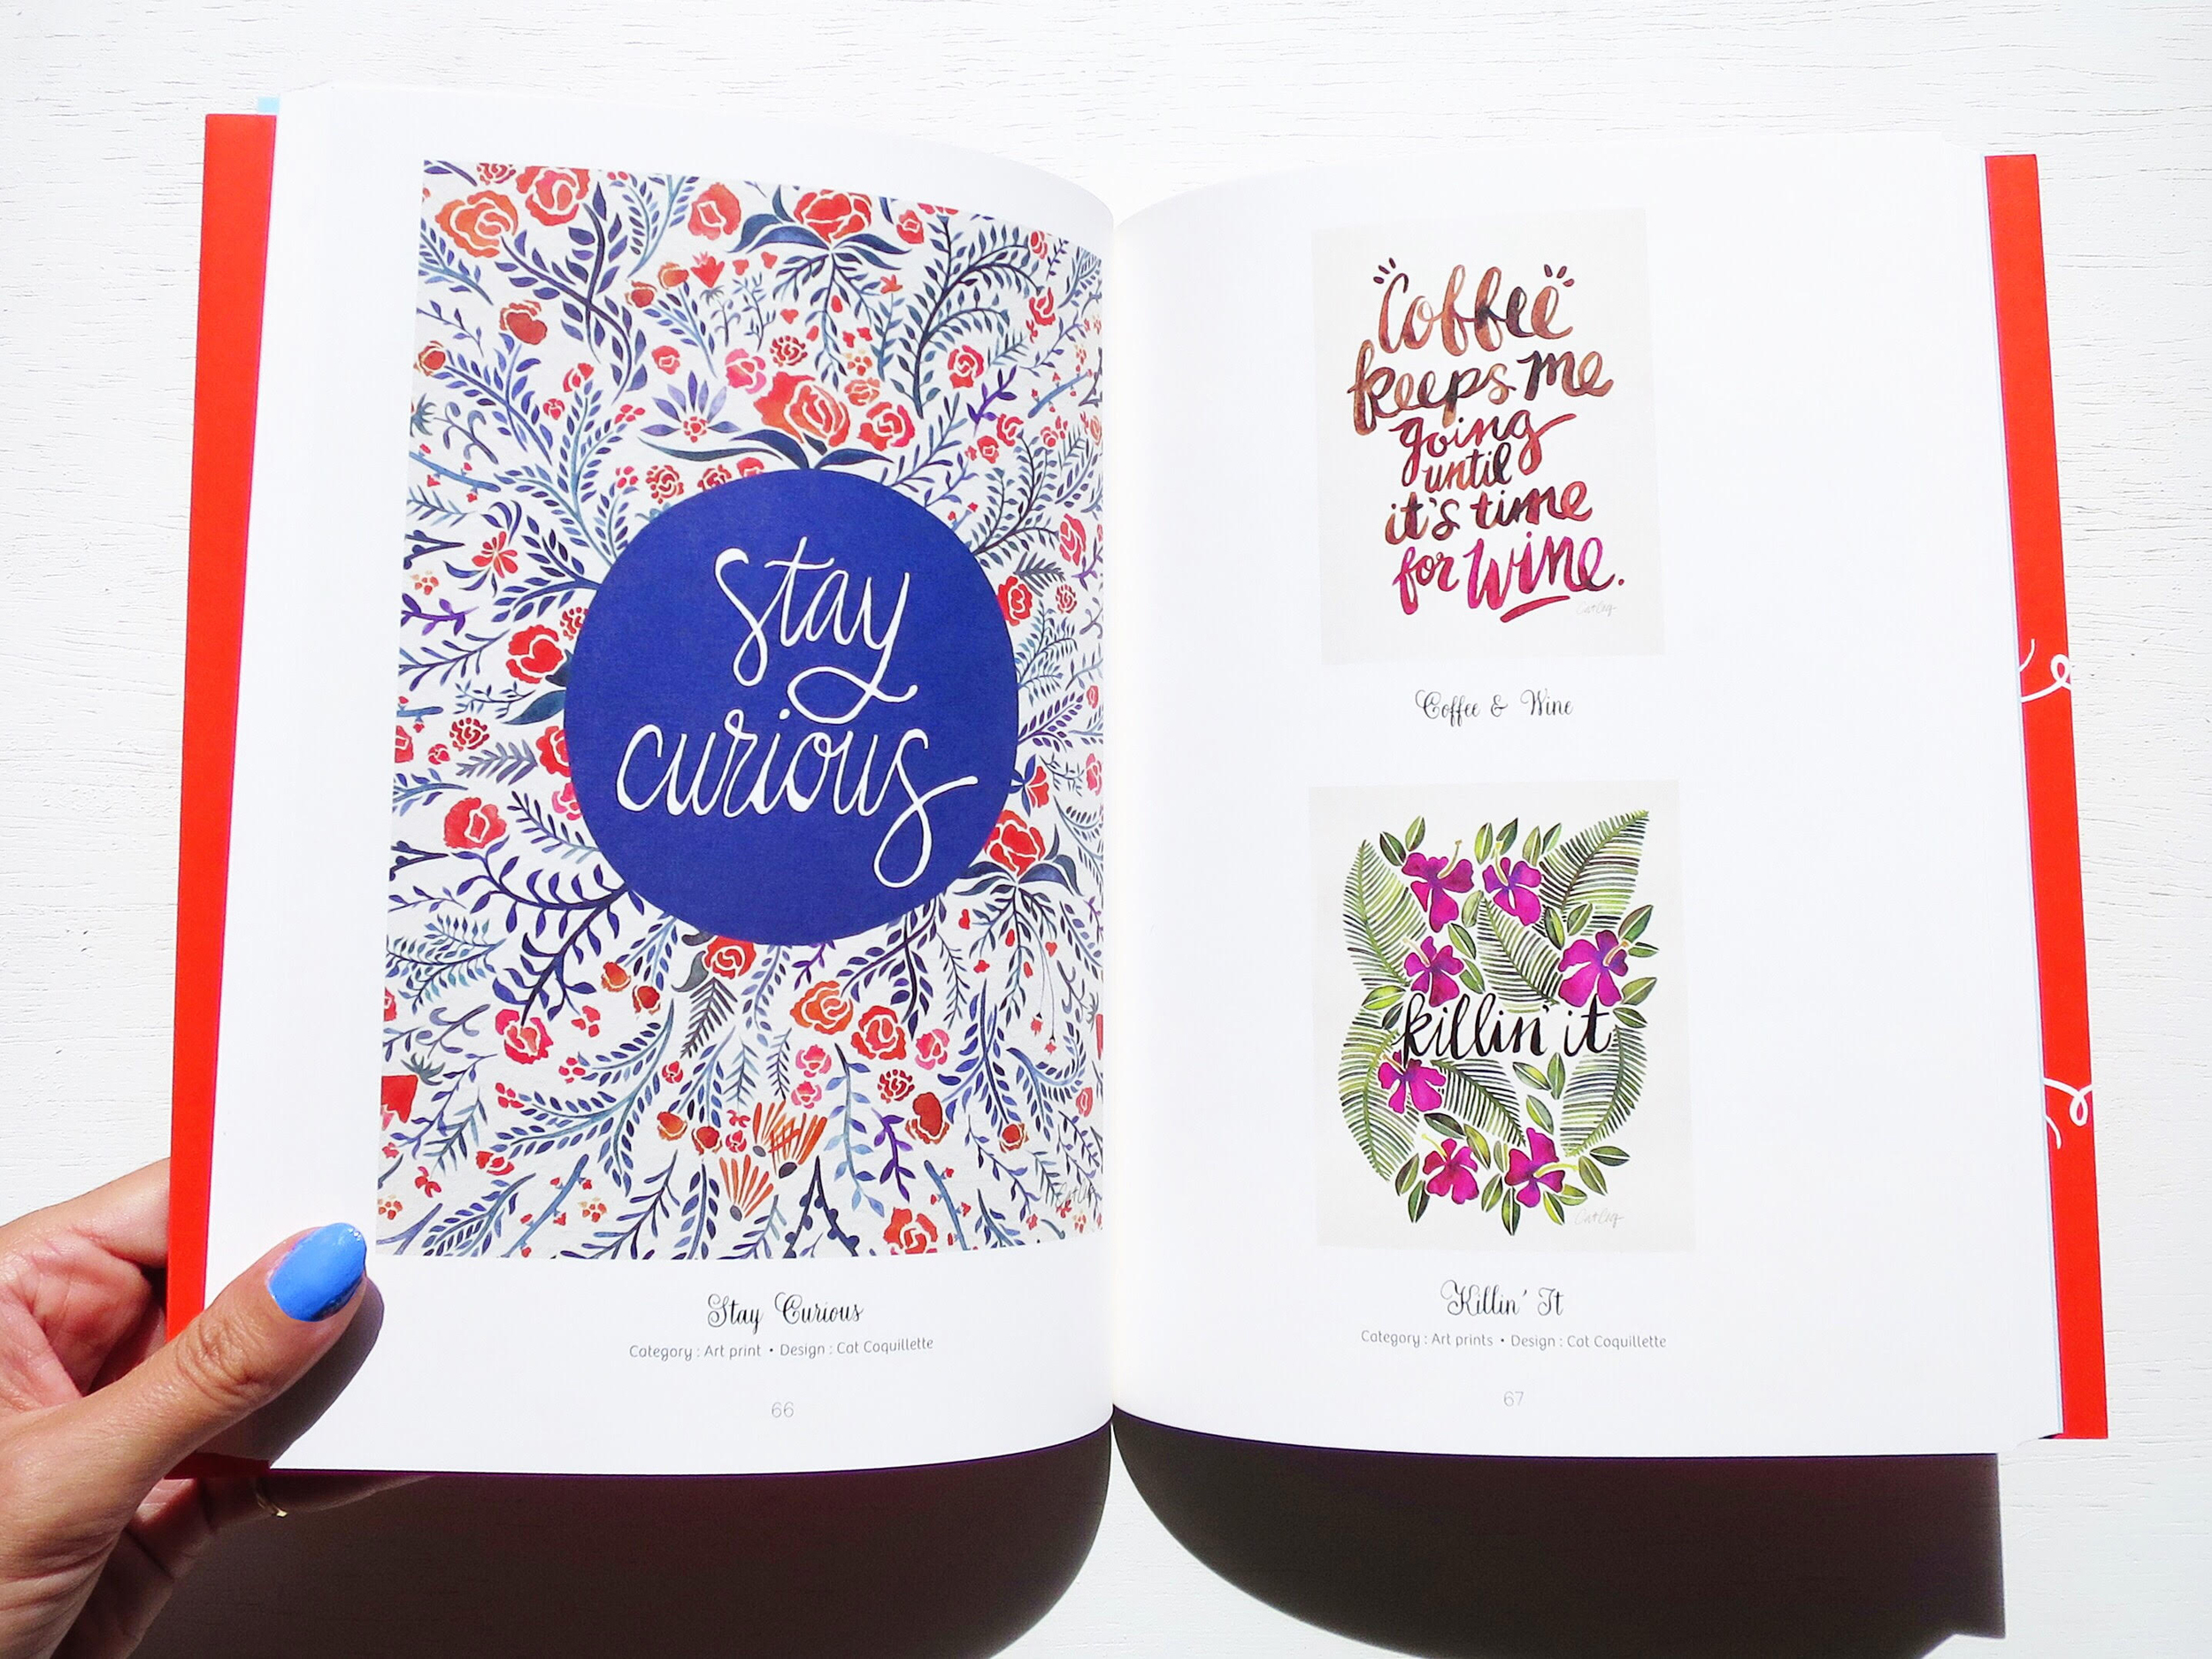 stay
curious
Stay Curious
Category : Art print • Design : Cat Coquillette
66
"Coffee"
keeps me
going
until
it's time
for wine.
CatCoq
Coffee & Wine
killin' it
CatCoq
Killin' It
Category : Art prints • Design : Cat Coquillette
67